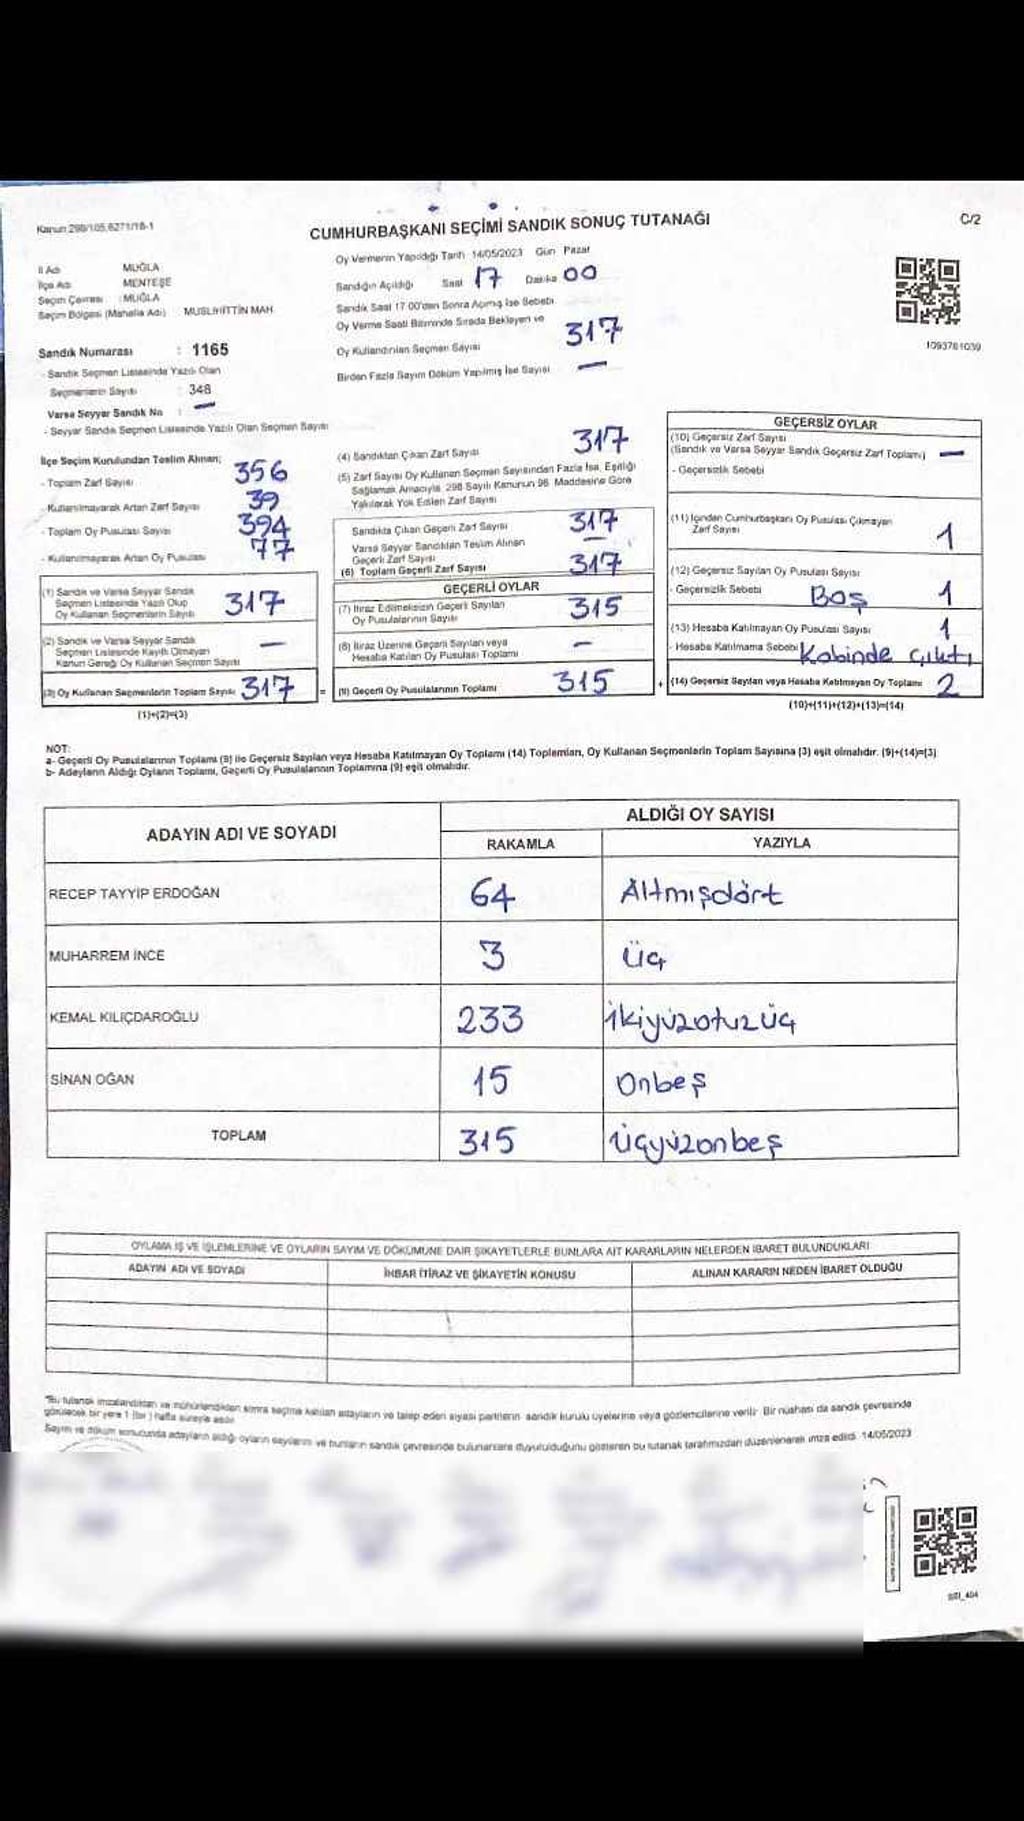 Kanun 298/105,6271/18-1
CUMHURBAŞKANI SEÇİMİ SANDIK SONUÇ TUTANAĞI
C/2
İl Adı MUĞLA
İlçe Adı MENTEŞE
Seçim Çevresi : MUĞLA
Seçim Bölgesi (Mahalle Adı) MUSLİHİTTİN MAH
Sandık Numarası : 1165
- Sandık Seçmen Listesinde Yazılı Olan
Seçmenlerin Sayısı : 348
Varsa Seyyar Sandık No : —
- Seyyar Sandık Seçmen Listesinde Yazılı Olan Seçmen Sayısı
Oy Vermenin Yapıldığı Tarih 14/05/2023 Gün Pazar
Sandığın Açıldığı Saat 17 Dakika 00
Sandık Saat 17:00'den Sonra Açılmış İse Sebebi
Oy Verme Saati Bitiminde Sırada Bekleyen ve
Oy Kullandırılan Seçmen Sayısı 317
Birden Fazla Sayım Döküm Yapılmış İse Sayısı —
1093781039
İlçe Seçim Kurulundan Teslim Alınan;
- Toplam Zarf Sayısı 356
- Kullanılmayarak Artan Zarf Sayısı 39
- Toplam Oy Pusulası Sayısı 394
- Kullanılmayarak Artan Oy Pusulası 77
(1) Sandık ve Varsa Seyyar Sandık
Seçmen Listesinde Yazılı Olup
Oy Kullanan Seçmenlerin Sayısı 317
(2) Sandık ve Varsa Seyyar Sandık
Seçmen Listesinde Kayıtlı Olmayan
Kanun Gereği Oy Kullanan Seçmen Sayısı —
(3) Oy Kullanan Seçmenlerin Toplam Sayısı 317 =
(1)+(2)=(3)
(4) Sandıktan Çıkan Zarf Sayısı 317
(5) Zarf Sayısı Oy Kullanan Seçmen Sayısından Fazla İse, Eşitliği
Sağlamak Amacıyla 298 Sayılı Kanunun 98. Maddesine Göre
Yakılarak Yok Edilen Zarf Sayısı
Sandıkta Çıkan Geçerli Zarf Sayısı 317
Varsa Seyyar Sandıktan Teslim Alınan
Geçerli Zarf Sayısı —
(6) Toplam Geçerli Zarf Sayısı 317
GEÇERLİ OYLAR
(7) İtiraz Edilmeksizin Geçerli Sayılan
Oy Pusulalarının Sayısı 315
(8) İtiraz Üzerine Geçerli Sayılan veya
Hesaba Katılan Oy Pusulası Toplamı —
(9) Geçerli Oy Pusulalarının Toplamı 315 +
GEÇERSİZ OYLAR
(10) Geçersiz Zarf Sayısı
(Sandık ve Varsa Seyyar Sandık Geçersiz Zarf Toplamı) —
- Geçersizlik Sebebi
(11) İçinden Cumhurbaşkanı Oy Pusulası Çıkmayan
Zarf Sayısı 1
(12) Geçersiz Sayılan Oy Pusulası Sayısı
- Geçersizlik Sebebi Boş 1
(13) Hesaba Katılmayan Oy Pusulası Sayısı 1
- Hesaba Katılmama Sebebi Kabinde çıktı
(14) Geçersiz Sayılan veya Hesaba Katılmayan Oy Toplamı 2
(10)+(11)+(12)+(13)=(14)
NOT:
a- Geçerli Oy Pusulalarının Toplamı (9) ile Geçersiz Sayılan veya Hesaba Katılmayan Oy Toplamı (14) Toplamları, Oy Kullanan Seçmenlerin Toplam Sayısına (3) eşit olmalıdır. (9)+(14)=(3)
b- Adayların Aldığı Oyların Toplamı, Geçerli Oy Pusulalarının Toplamına (9) eşit olmalıdır.
ADAYIN ADI VE SOYADI
ALDIĞI OY SAYISI
RAKAMLA YAZIYLA
RECEP TAYYİP ERDOĞAN 64 Altmışdört
MUHARREM İNCE 3 Üç
KEMAL KILIÇDAROĞLU 233 ikiyüzotuzüç
SİNAN OĞAN 15 Onbeş
TOPLAM 315 üçyüzonbeş
OYLAMA İŞ VE İŞLEMLERİNE VE OYLARIN SAYIM VE DÖKÜMÜNE DAİR ŞİKAYETLERLE BUNLARA AİT KARARLARIN NELERDEN İBARET BULUNDUKLARI
ADAYIN ADI VE SOYADI İHBAR İTİRAZ VE ŞİKAYETİN KONUSU ALINAN KARARIN NEDEN İBARET OLDUĞU
*Bu tutanak imzalandıktan ve mühürlendikten sonra seçime katılan adayların ve talep eden siyasi partilerin sandık kurulu üyelerine veya gözlemcilerine verilir. Bir nüshası da sandık çevresinde
görülecek bir yere 1 (bir) hafta süreyle asılır.
Sayım ve döküm sonucunda adayların aldığı oyların sayılarını ve bunların sandık çevresinde bulunanlara duyurulduğunu gösteren bu tutanak tarafımızdan düzenlenerek imza edildi. 14/05/2023